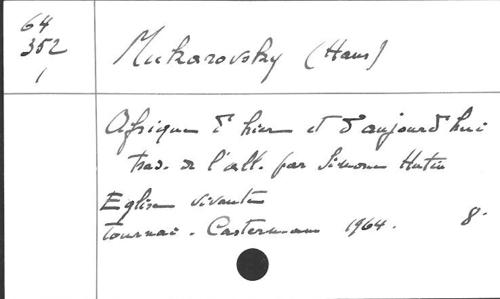 64
352
1
Mukarovsky (Hans)
Afrique d'hier et d'aujourd'hui
trad. de l'all. par Simone Hutin
Eglise vivante
Tournai. Casterman 1964. 8°